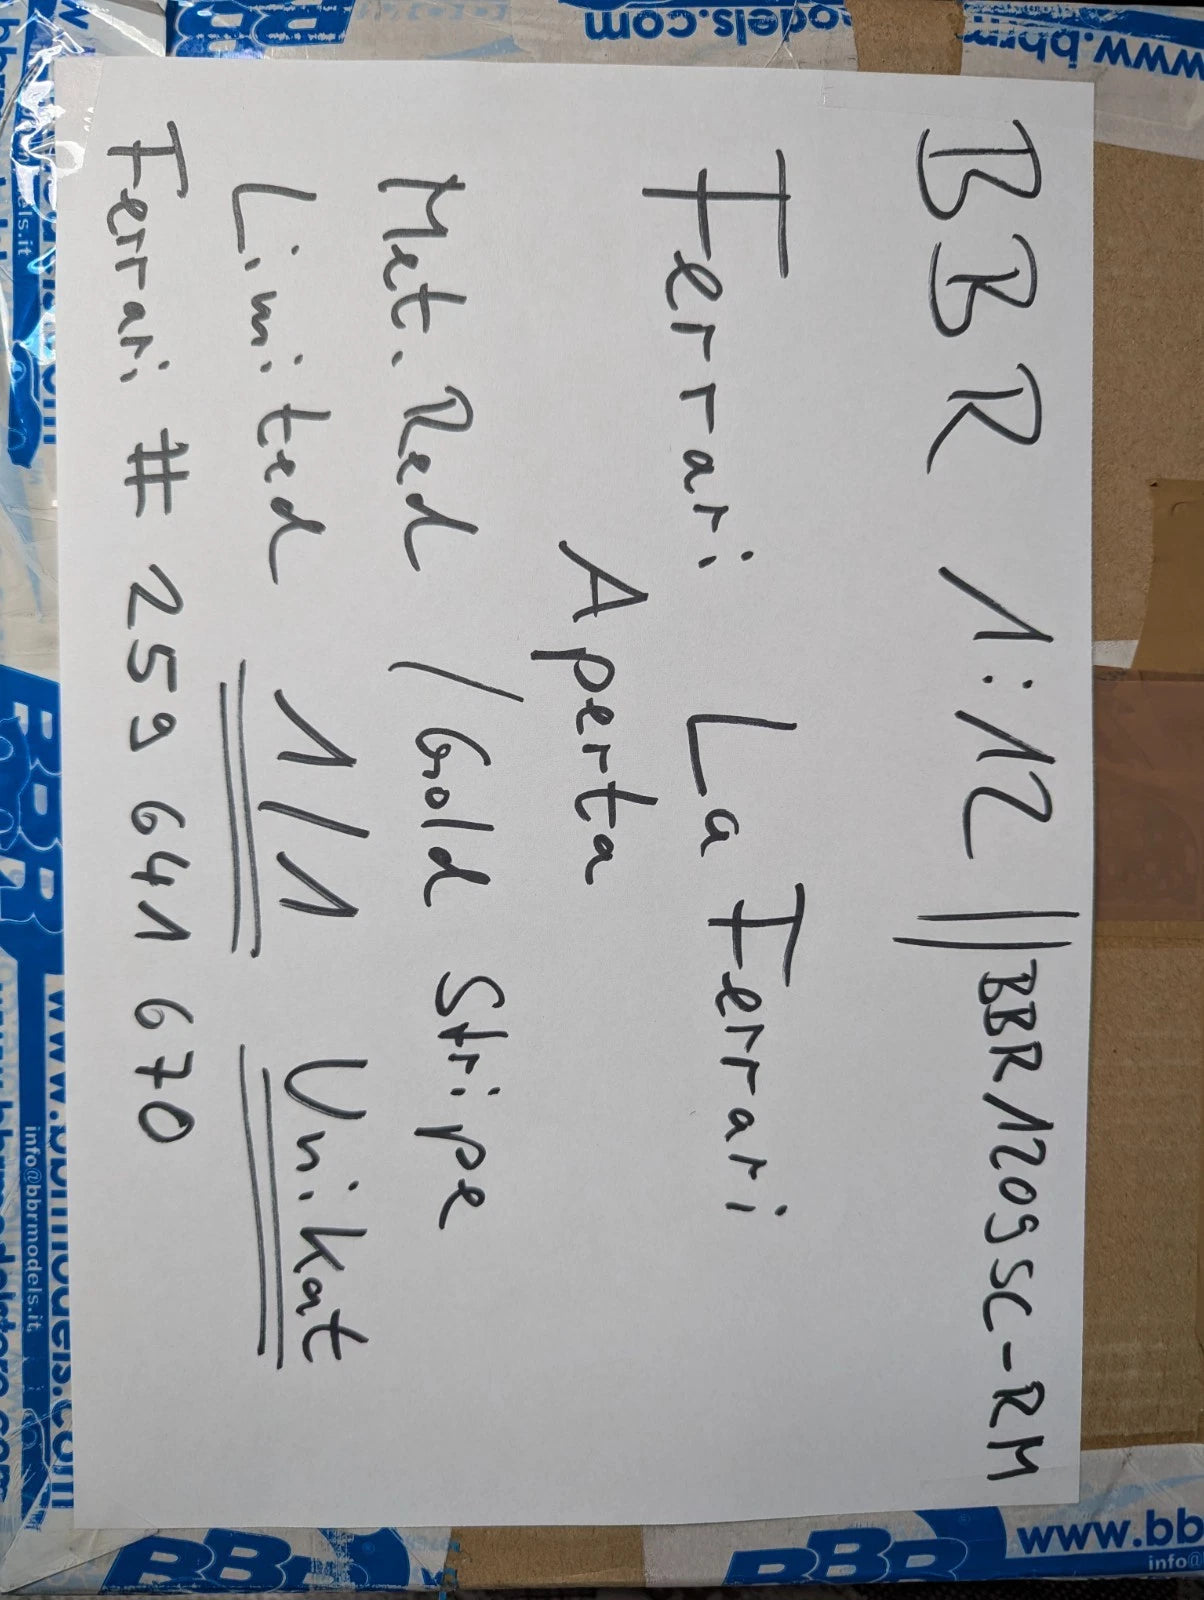 BBR 1:12 || BBR1209SC-RM
Ferrari La Ferrari
Aperta
Met. Red / Gold Stripe
Limited 1/1 Unikat
Ferrari # 259 641 670
www.bbrm
odels.com
BBR
els.it
BBR
www.bbrmodels.com
info@bbrmodels.it
BBR
BBR
www.bb
info@